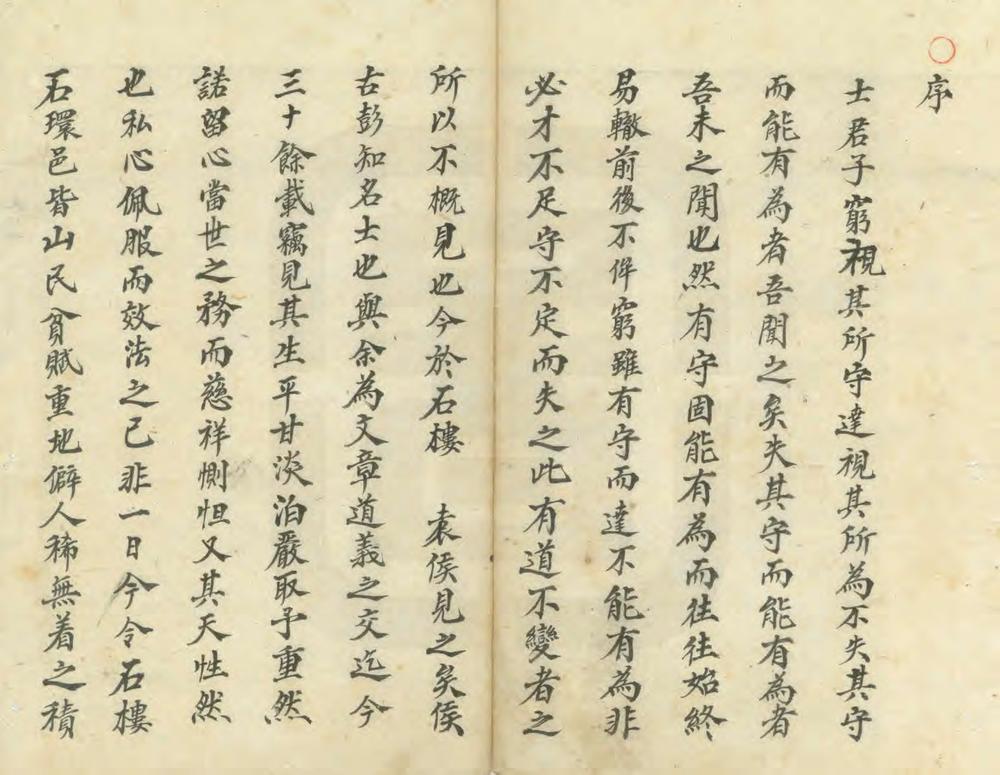 序
士君子窮視其所守達視其所為不失其守
而能有為者吾聞之矣失其守而能有為者
吾未之聞也然有守固能有為而往往始終
易轍前後不侔窮雖有守而達不能有為非
必才不足守不定而失之此有道不變者之
所以不概見也今於石樓　袁侯見之矣侯
古彭知名士也與余為文章道義之交迄今
三十餘載竊見其生平甘淡泊嚴取予重然
諾留心當世之務而慈祥惻怛又其天性然
也私心佩服而效法之已非一日今令石樓
石環邑皆山民貧賦重地僻人稀無着之積